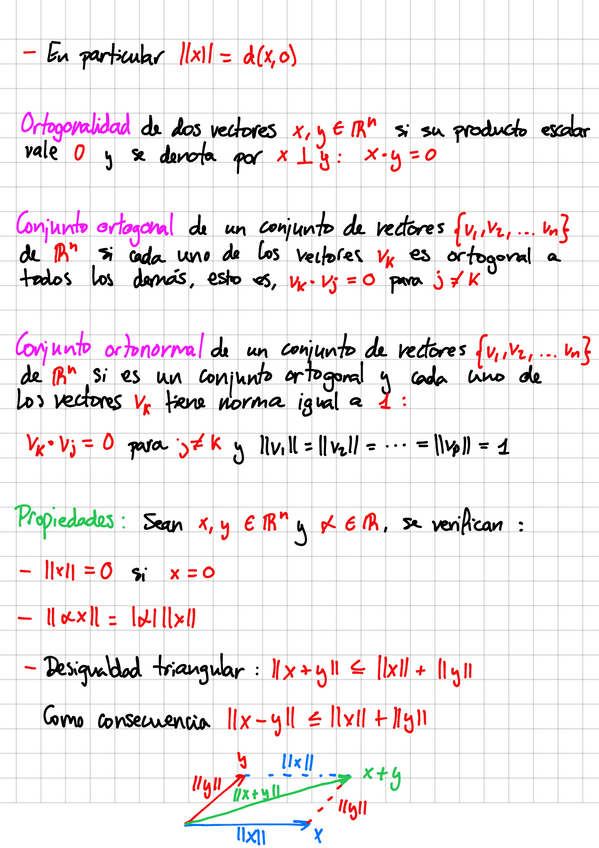 - En particular ||x|| = d(x,0)
Ortogonalidad de dos vectores x, y ∈ ℝⁿ si su producto escalar
vale 0 y se denota por x ⊥ y : x · y = 0
Conjunto ortogonal de un conjunto de vectores {v₁, v₂, ... vn}
de ℝⁿ si cada uno de los vectores vₖ es ortogonal a
todos los demás, esto es, vₖ · vj = 0 para j ≠ k
Conjunto ortonormal de un conjunto de vectores {v₁, v₂, ... vn}
de ℝⁿ si es un conjunto ortogonal y cada uno de
los vectores vₖ tiene norma igual a 1 :
vₖ · vj = 0 para j ≠ k y ||v₁|| = ||v₂|| = ··· = ||vp|| = 1
Propiedades : Sean x, y ∈ ℝⁿ y α ∈ ℝ, se verifican :
- ||x|| = 0 si x = 0
- ||αx|| = |α| ||x||
- Desigualdad triangular : ||x + y|| ≤ ||x|| + ||y||
Como consecuencia ||x - y|| ≤ ||x|| + ||y||
y ||x||
||y|| ||x+y|| x + y
||y||
||x|| x